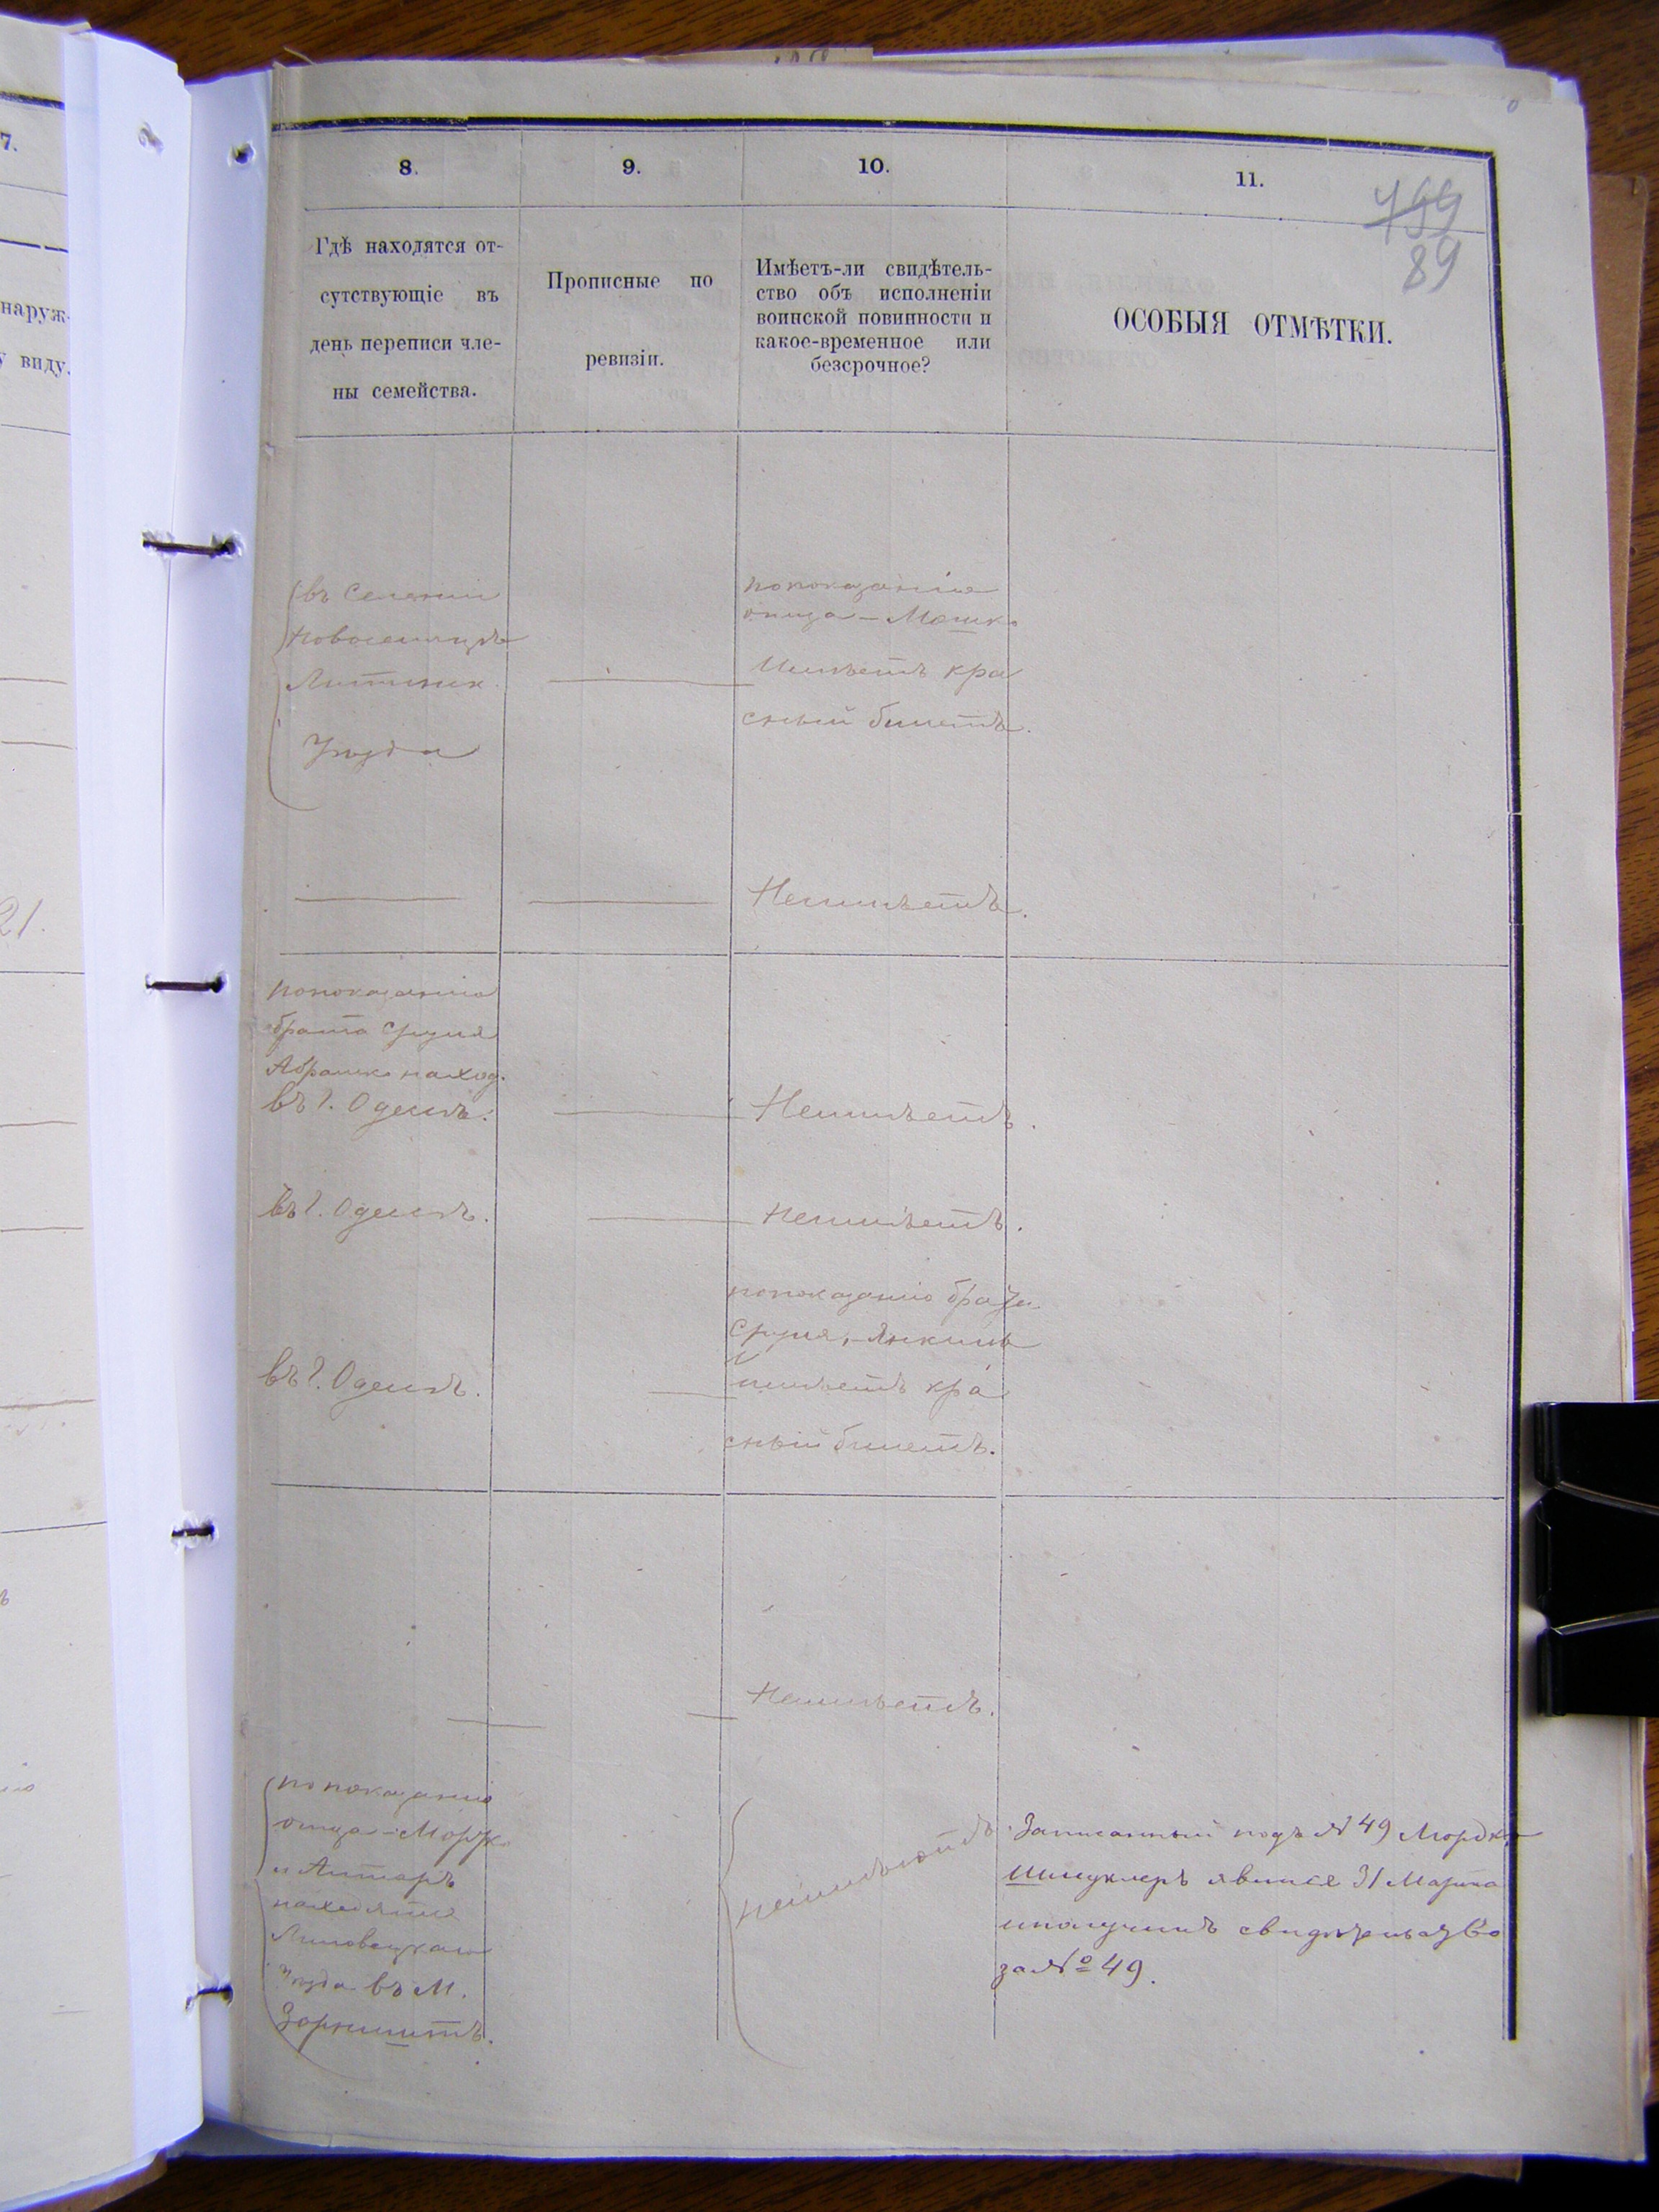 7.
наруж-
виду.
21.
8.
9.
10.
11.
799
89
Гдѣ находятся от-
сутствующіе въ
день переписи чле-
ны семейства.
Прописные по
ревизіи.
Имѣетъ-ли свидѣтель-
ство объ исполненіи
воинской повинности и
какое-временное или
безсрочное?
ОСОБЫЯ ОТМѢТКИ.
въ Селеніи
Новоселицѣ
Литинск.
Уѣзда
по показанію
отца - Мошко
Имѣетъ кра
сный билетъ.
Неимѣетъ.
по показанію
брата Сруля
Абрамко наход.
въ г. Одессѣ.
Неимѣетъ.
въ г. Одессѣ.
неимѣетъ.
въ г. Одессѣ.
по показанію брата
Сруля, Янкель
имѣетъ кра
сный билетъ.
Неимѣетъ.
по показанію
отца - Мордко
и
находятся
Липовецкаго
Уѣзда въ М.
неимѣютъ
Записанный подъ № 49 Мордко
Шмуклеръ явился 31 Марта
и получилъ свидѣтельство
за № 49.